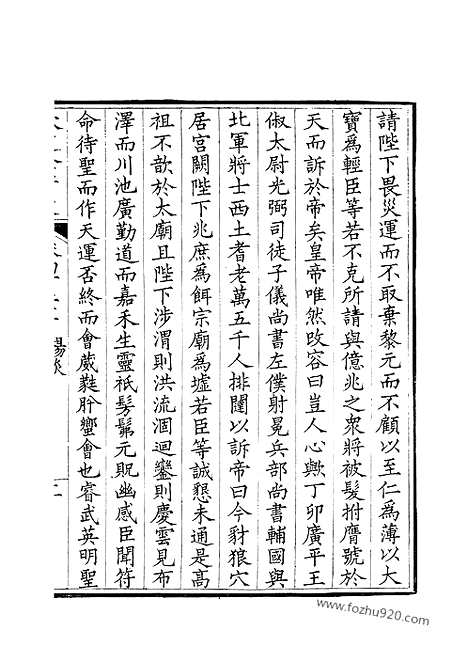 請陛下畏災運而不取棄黎元而不顧以至仁為薄以大
寶為輕臣等若不克所請與億兆之衆將被髮拊膺號於
天而訴於帝矣皇帝唯然改容曰豈人心歟丁卯廣平王
俶太尉光弼司徒子儀尚書左僕射冕兵部尚書輔國與
北軍將士西土耆老萬五千人排闥以訴帝曰今豺狼穴
居宫闕陛下兆庶為餌宗廟為墟若臣等誠懇未通是高
祖不歆於太廟且陛下涉渭則洪流涸迴鑾則慶雲見布
澤而川池廣勤道而嘉禾生靈祇髣髴元貺幽感臣聞符
命待聖而作天運否終而會葳蕤肸蠁會也睿武英明聖
楊炎
www.fozhu920.com